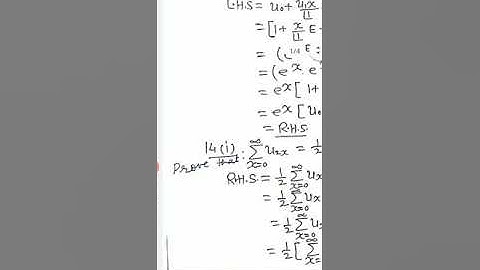 L.H.S = u₀ + u₁x/⌊1
= [1 + x/⌊1 E
=
= (eˣ. e
= eˣ [ 1 +
= eˣ [ u₀
= R.H.S.
14(i)
Prove that: ∑_{x=0}^{∞} u₂ₓ = 1/2
R.H.S. = 1/2 ∑_{x=0}^{∞} uₓ
= 1/2 ∑_{x=0}^{∞} uₓ
= 1/2 ∑_{x=0}^{∞} uₓ
= 1/2 [ ∑_{x=}^{∞}